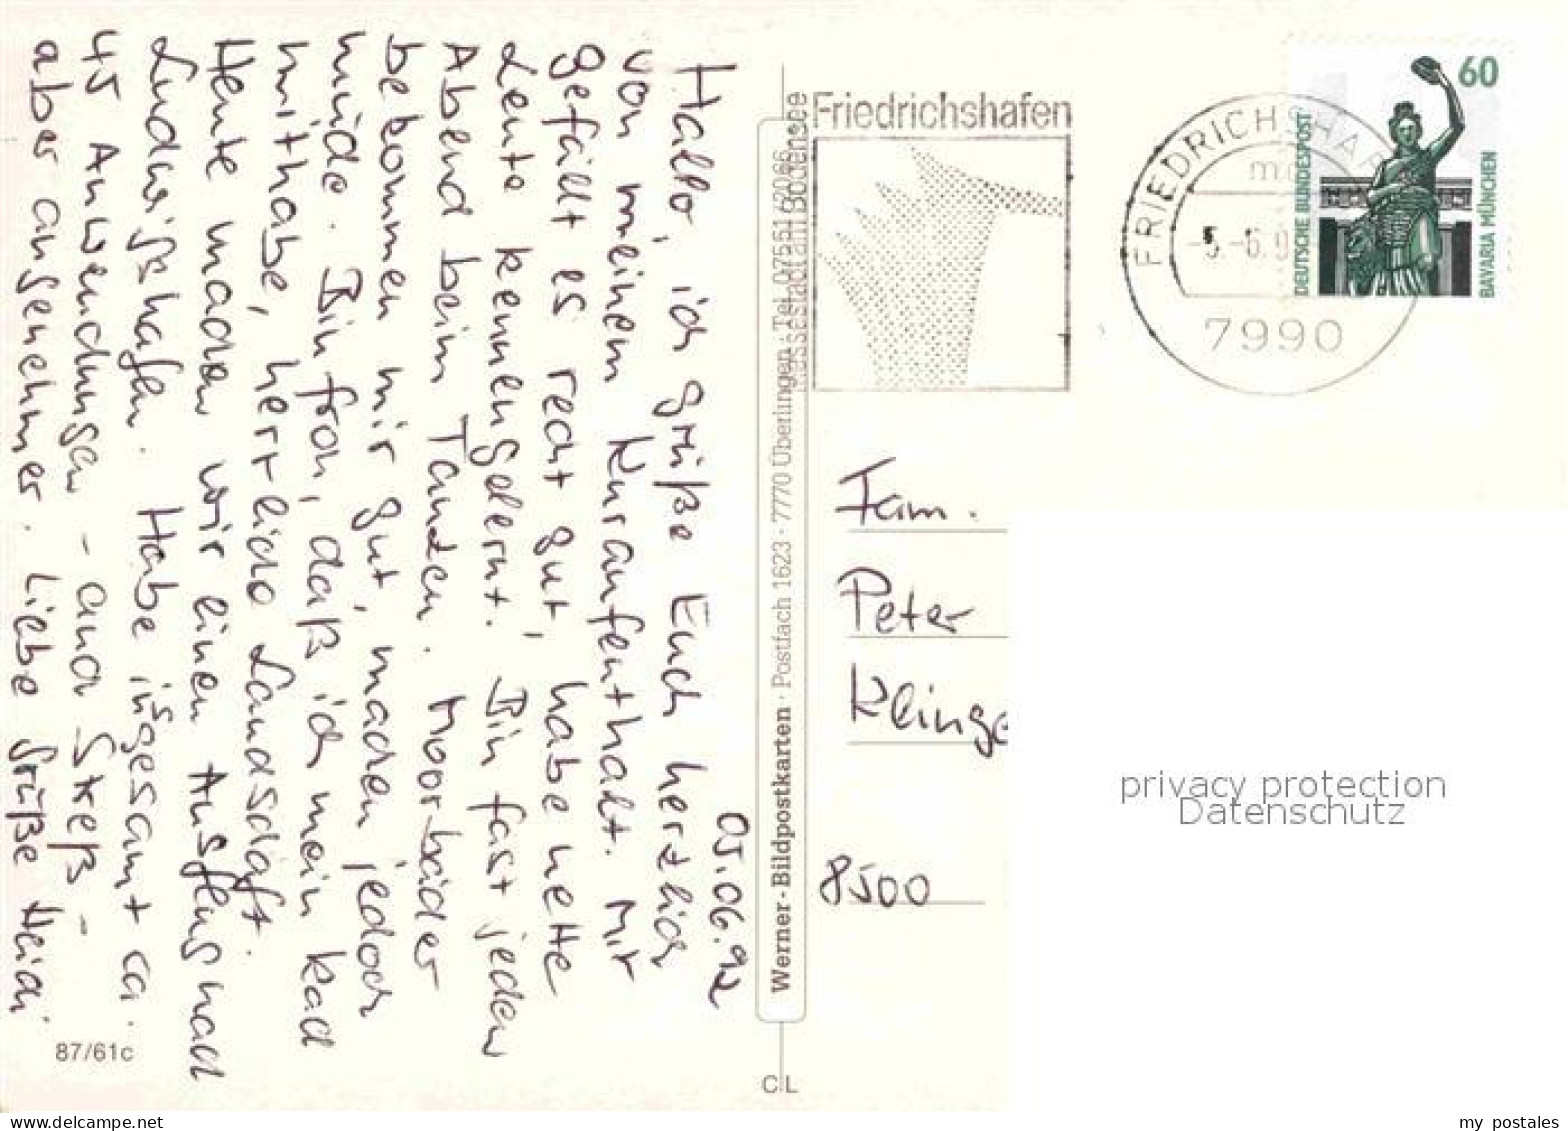 05.06.92
Hallo, ich grüße Euch herzlich
von meinem Kuraufenthalt. Mir
gefällt es recht gut, habe nette
Leute kennengelernt. Bin fast jeden
Abend beim Tanzen. Moorbäder
bekommen mir gut, machen jedoch
müde. Bin froh, daß ich mein Rad
mithabe, herrliche Landschaft.
Heute machen wir einen Ausflug nach
Ludwigshafen. Habe insgesamt ca.
45 Anwendungen - auch Streß -
aber angenehmer. Liebe Grüße Heidi
87/61c
Werner-Bildpostkarten · Postfach 1623 · 7770 Überlingen · Tel. 07551/62066
CL
Friedrichshafen
Messestadt am Bodensee
FRIEDRICHSHAF
-5.-6.9
7990
60
DEUTSCHE BUNDESPOST
BAVARIA MÜNCHEN
Fam.
Peter
Klinge
8500
privacy protection
Datenschutz
my postales
www.delcampe.net